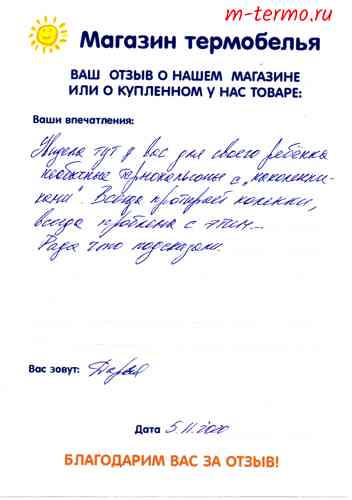 m-termo.ru
Магазин термобелья
ВАШ ОТЗЫВ О НАШЕМ МАГАЗИНЕ
ИЛИ О КУПЛЕННОМ У НАС ТОВАРЕ:
Ваши впечатления:
Нашла тут у вас для своего ребёнка
необычные термокальсоны с „наколенни-
ками". Всегда протирает коленки,
всегда проблема с этим...
Рада что подсказали.
Вас зовут: Дарья
Дата 5.11.2020
БЛАГОДАРИМ ВАС ЗА ОТЗЫВ!